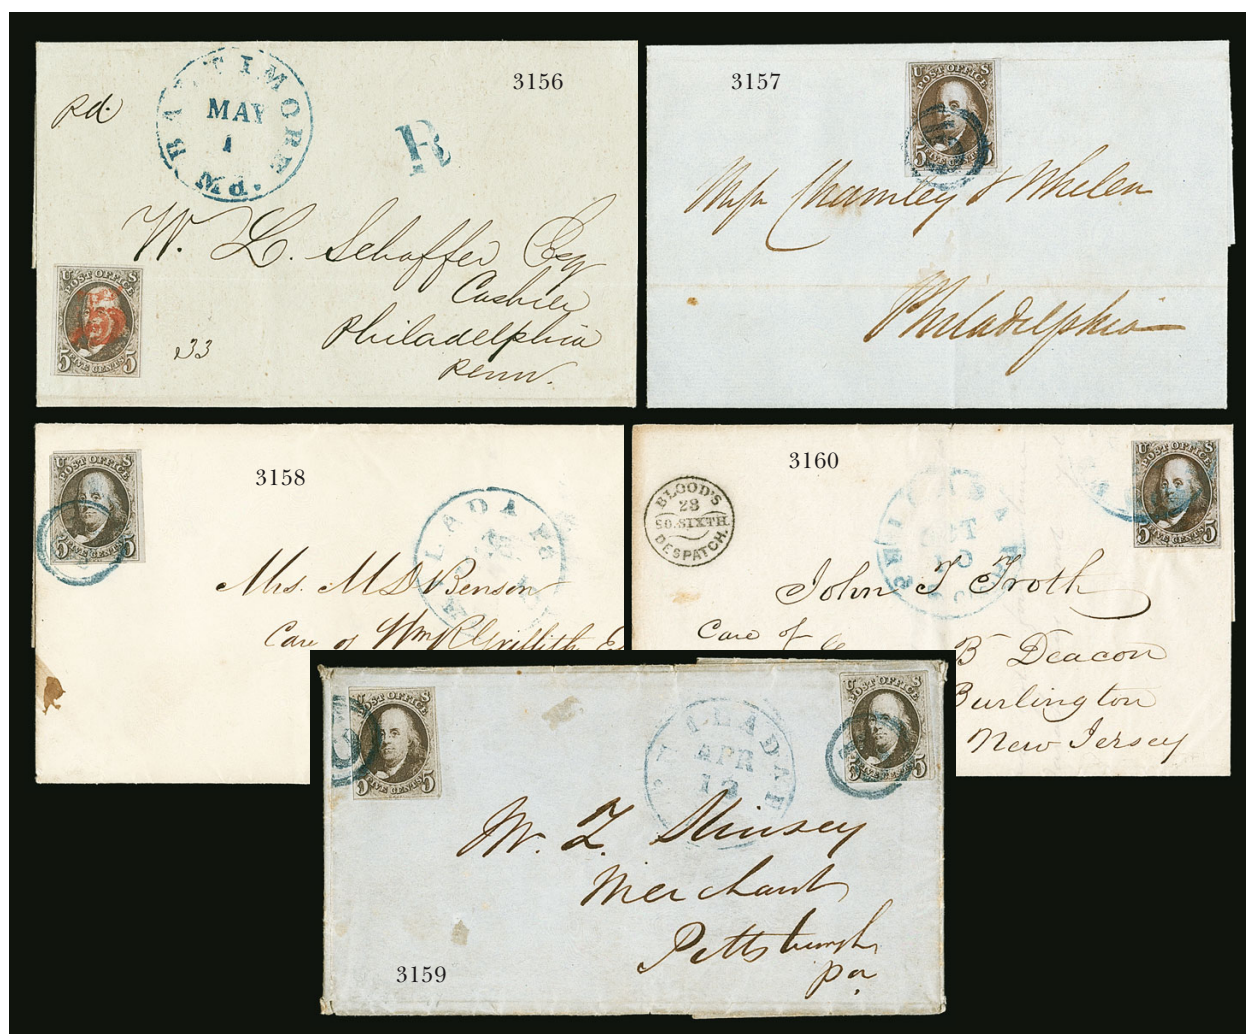 3156
BALTIMORE. Md.
MAY
1
R
W. L. Schaffer Esq
Cashier
Philadelphia
Penn.
U S
POST OFFICE
5
5 5
FIVE CENTS
233
3157
U S
POST OFFICE
5
FIVE CENTS
Charnley & Whelen
Philadelphia
3158
U S
POST OFFICE
5 5
FIVE CENTS
Mrs. M D Benson
Care of Wm R Griffith E
3160
BLOOD'S
28
SO. SIXTH
DESPATCH.
OCT
10
U S
POST OFFICE
5 5
FIVE CENTS
John T Troth
Care of
B Deacon
Burlington
New Jersey
U S
POST OFFICE
5 5
FIVE CENTS
APR
13
U S
POST OFFICE
5 5
FIVE CENTS
Merchant
Pittsburgh
Pa
3159